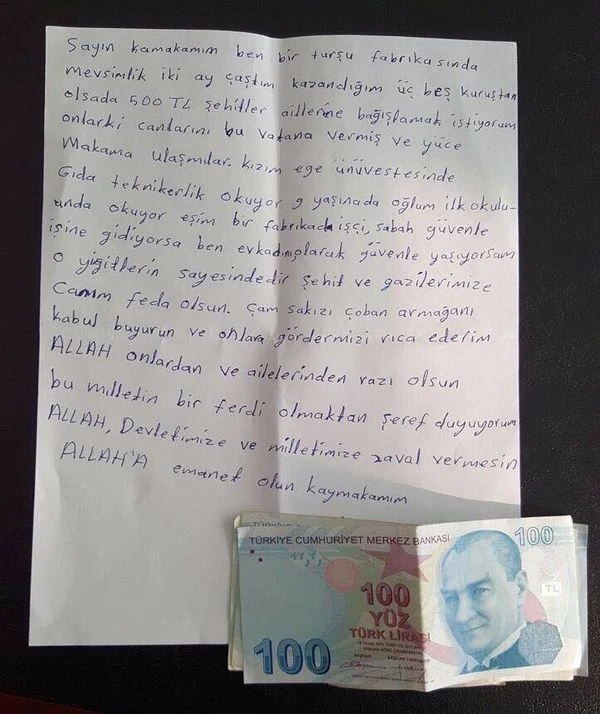 Sayın kamakamım ben bir turşu fabrikasında
mevsimlik iki ay çaştım kazandığım üç beş kuruştan
olsada 500 TL şehitler aillerine bağışlamak istiyorum
onlarki canlarını bu vatana vermiş ve yüce
Makama ulaşmılar. kızım ege ünüvestesinde
Gıda teknikerlik okuyor 9 yaşınada oğlum ilk okulu-
unda okuyor eşim bir fabrikada işçi, sabah güvenle
işine gidiyorsa ben evkadınıolarak güvenle yaşıyorsam
o yiğitlerin sayesindedir şehit ve gazilerimize
Canım feda olsun. Çam sakızı çoban armağanı
kabul buyurun ve onlara gördermizi rica ederim
ALLAH onlardan ve ailelerinden razı olsun
bu milletin bir ferdi olmaktan şeref duyuyorum
ALLAH, Devletimize ve milletimize zaval vermesin
ALLAH'A emanet olun kaymakamım
TÜRKİYE CUMHURİYET MERKEZ BANKASI
100
100
YÜZ
TÜRK LİRASI
TL
100